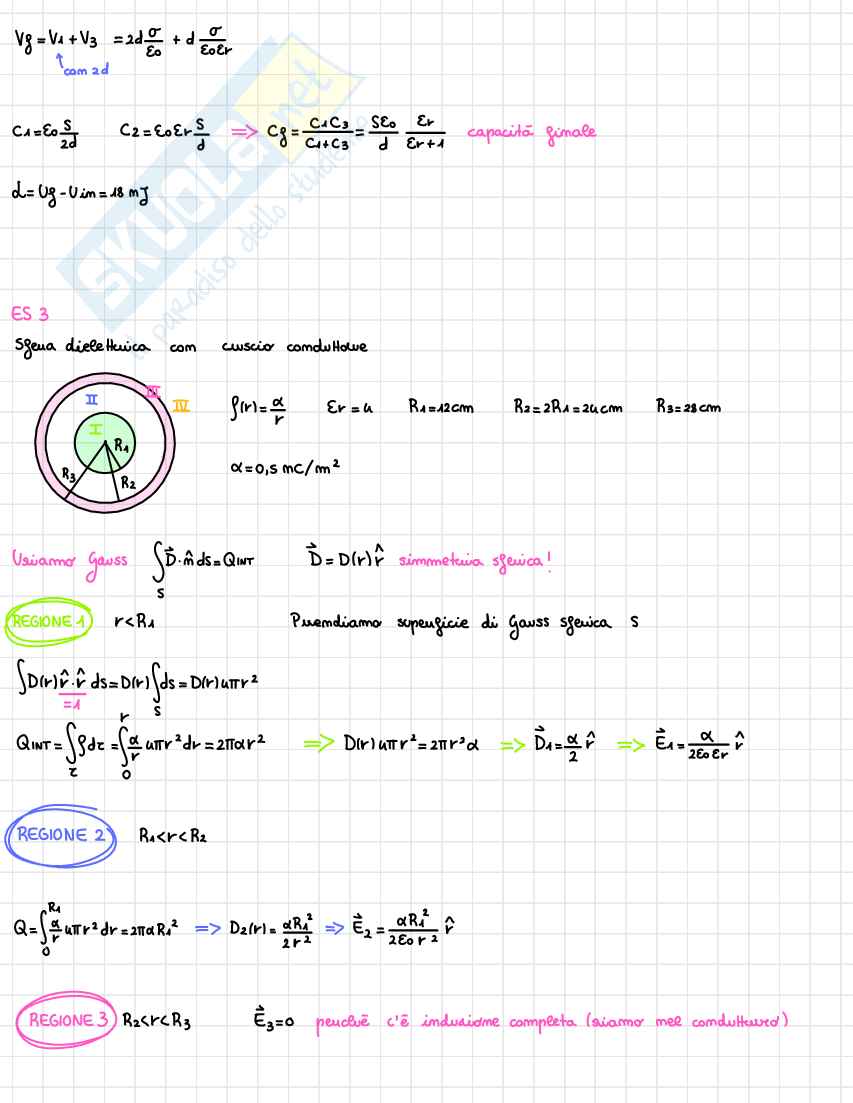 Vf = V1 + V3 = 2d σ/ε0 + d σ/ε0εr
con 2d
C1 = ε0 S/2d C2 = ε0εr S/d => Cf = C1C3/C1+C3 = Sε0/d εr/εr+1 capacità finale
L = Uf - Uin = 18 mJ
ES 3
Sfera dielettrica con guscio conduttore
ρ(r) = α/r εr = 4 R1 = 12cm R2 = 2R1 = 24cm R3 = 28cm
α = 0,5 mC/m²
I II III IV R1 R2 R3
Usiamo Gauss ∫S D⃗·n̂ ds = QINT D⃗ = D(r) r̂ simmetria sferica!
REGIONE 1 r<R1 Prendiamo superficie di Gauss sferica S
∫D(r) r̂·r̂ ds = D(r) ∫S ds = D(r) 4πr²
=1
QINT = ∫τ ρdτ = ∫0^r α/r 4πr² dr = 2παr² => D(r) 4πr² = 2πr²α => D⃗1 = α/2 r̂ => E⃗1 = α/2ε0εr r̂
REGIONE 2 R1<r<R2
Q = ∫0^R1 α/r 4πr² dr = 2παR1² => D2(r) = αR1²/2r² => E⃗2 = αR1²/2ε0r² r̂
REGIONE 3 R2<r<R3 E⃗3 = 0 perché c'è induzione completa (siamo nel conduttore)
SKUOLA.net
il paradiso dello studente